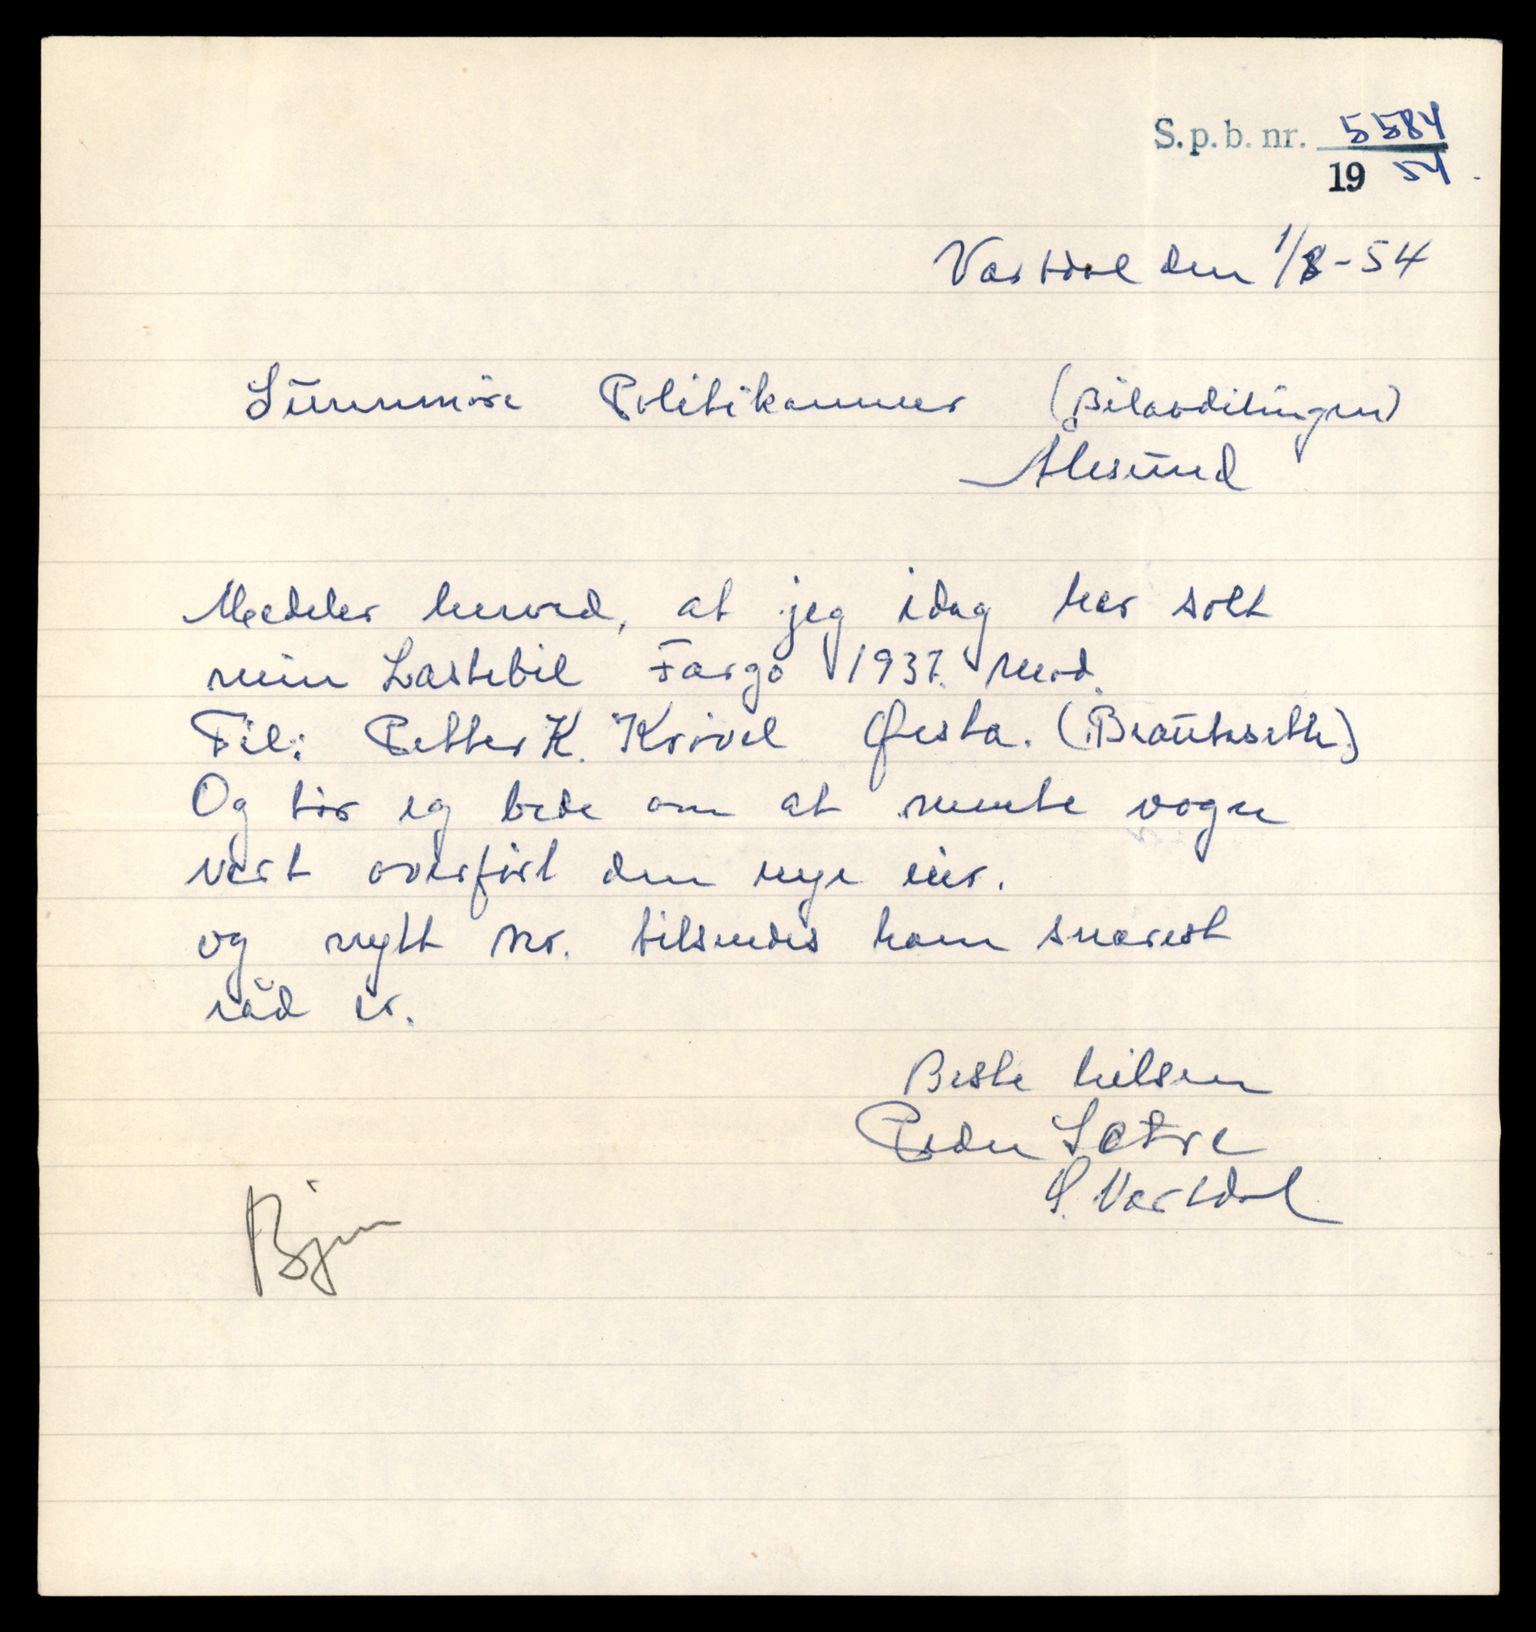 S.p.b. nr. 5584
19 54.
Vartdal den 1/8-54
Sunnmöre Politikammer (Bilavdelingen)
Ålesund
Medeler herved, at jeg idag har solt
min Lastebil Fargo 1937. Mod.
Til: Petter K. Krövel Ørsta. (Brautaseth.)
Og tör eg bede om at nemte vogn
vert overfört den nye eier.
og nytt Nr. tilsendes ham snarest
råd er.
Beste hilsen
Peder Sætre
S. Vartdal